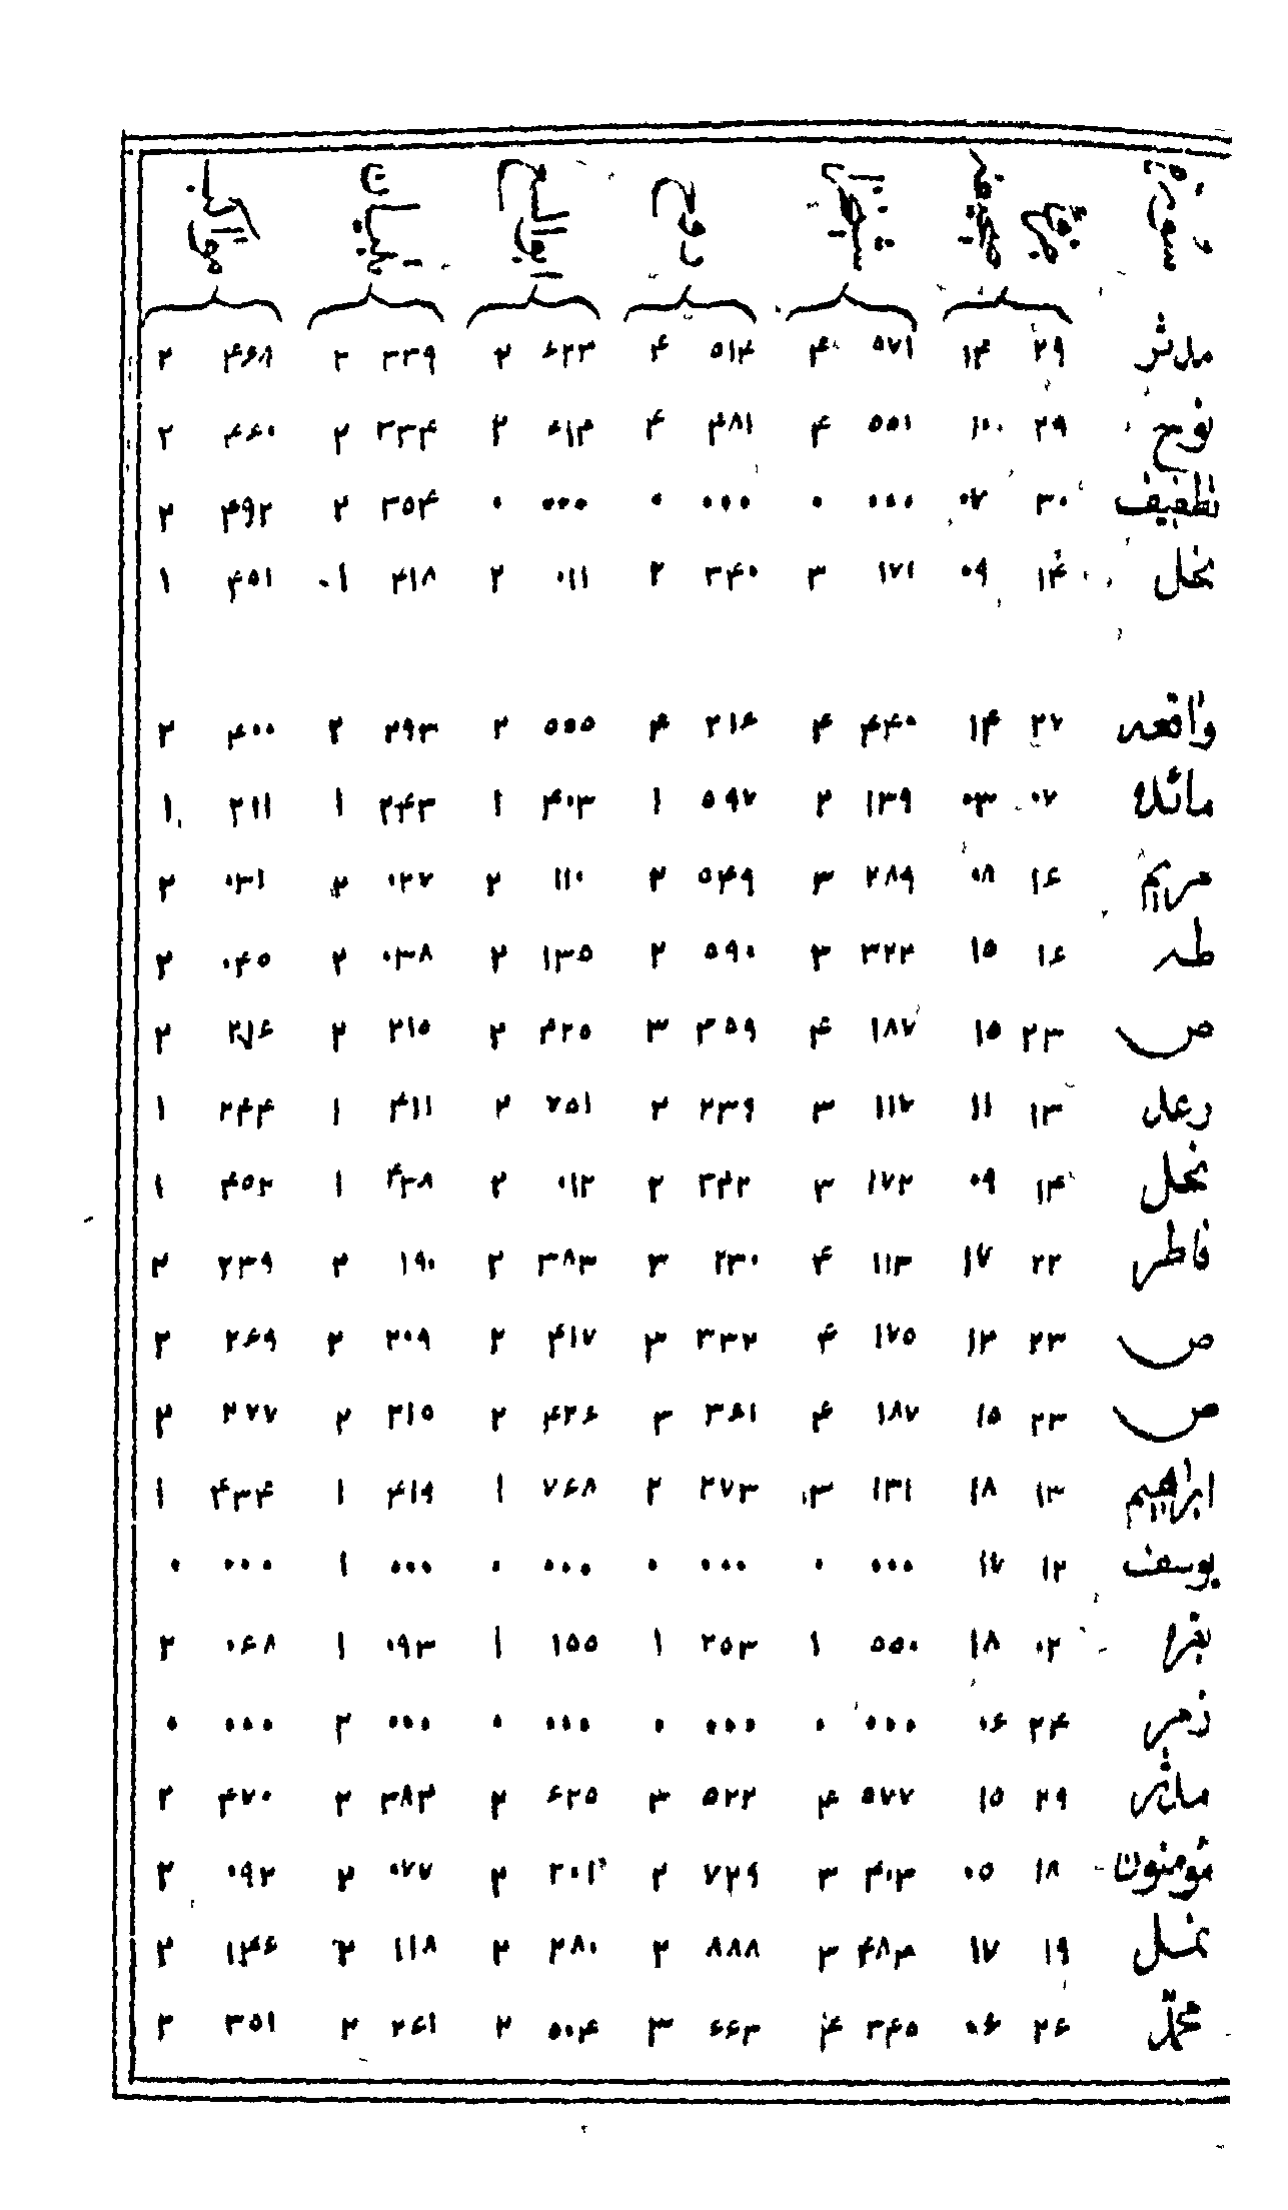 مدثر ۲۹ ۱۴ ۵۷۱ ۴ ۵۱۴ ۴ ۶۲۳ ۲ ۳۳۹ ۲ ۴۶۸ ۲
نوح ۲۹ ۱۰ ۵۵۱ ۴ ۴۸۱ ۴ ۶۱۴ ۲ ۳۳۴ ۲ ۴۶۰ ۲
تطفیف ۳۰ ۰۷ ۰۰۰ ۰ ۰۰۰ ۰ ۰۰۰ ۰ ۳۵۴ ۲ ۴۹۲ ۲
نحل ۱۴ ۰۹ ۱۷۱ ۳ ۳۴۰ ۲ ۰۱۱ ۲ ۴۱۸ ۱ ۴۵۱ ۱
واقعه ۲۷ ۱۴ ۴۴۰ ۴ ۲۱۶ ۴ ۵۵۵ ۲ ۲۹۳ ۲ ۴۰۰ ۲
مائده ۰۷ ۰۳ ۱۳۹ ۲ ۵۹۷ ۱ ۴۰۳ ۱ ۲۴۳ ۱ ۲۱۱ ۱
مریم ۱۶ ۰۸ ۲۸۹ ۳ ۵۴۹ ۲ ۱۱۰ ۲ ۰۲۷ ۲ ۰۳۱ ۲
طه ۱۶ ۱۵ ۳۲۲ ۳ ۵۹۰ ۲ ۱۳۵ ۲ ۰۳۸ ۲ ۰۴۵ ۲
ص ۲۳ ۱۵ ۱۸۷ ۴ ۳۵۹ ۳ ۴۲۵ ۲ ۲۱۵ ۲ ۲۷۶ ۲
رعد ۱۳ ۱۱ ۱۱۲ ۳ ۲۳۹ ۲ ۷۵۱ ۲ ۴۱۱ ۱ ۲۴۴ ۱
نحل ۱۴ ۰۹ ۱۷۲ ۳ ۳۴۲ ۲ ۰۱۲ ۲ ۴۳۸ ۱ ۴۵۲ ۱
فاطر ۲۲ ۱۷ ۱۱۳ ۴ ۲۳۰ ۳ ۳۸۳ ۲ ۱۹۰ ۲ ۲۳۹ ۲
ص ۲۳ ۱۲ ۱۷۵ ۴ ۳۳۲ ۳ ۴۱۷ ۲ ۲۰۹ ۲ ۲۶۹ ۲
ص ۲۳ ۱۵ ۱۸۷ ۴ ۳۶۱ ۳ ۴۲۶ ۲ ۲۱۵ ۲ ۲۷۷ ۲
ابراهیم ۱۳ ۱۸ ۱۳۱ ۳ ۲۷۳ ۲ ۷۶۸ ۱ ۴۱۹ ۱ ۴۳۴ ۱
یوسف ۱۲ ۱۷ ۰۰۰ ۰ ۰۰۰ ۰ ۰۰۰ ۰ ۰۰۰ ۱ ۰۰۰ ۰
بقره ۰۲ ۱۸ ۵۵۰ ۱ ۲۵۳ ۱ ۱۵۵ ۱ ۰۹۳ ۱ ۰۶۸ ۲
زمر ۲۴ ۰۶ ۰۰۰ ۰ ۰۰۰ ۰ ۰۰۰ ۰ ۰۰۰ ۲ ۰۰۰ ۰
مدثر ۲۹ ۱۵ ۵۷۷ ۴ ۵۲۲ ۳ ۶۲۵ ۲ ۳۸۳ ۲ ۴۷۰ ۲
مؤمنون ۱۸ ۰۵ ۴۰۳ ۳ ۷۲۹ ۲ ۲۰۲ ۲ ۰۷۷ ۲ ۰۹۲ ۲
نمل ۱۹ ۱۷ ۴۸۳ ۳ ۸۸۸ ۲ ۲۸۰ ۲ ۱۱۸ ۲ ۱۴۶ ۲
محمّد ۲۶ ۰۶ ۳۴۵ ۴ ۶۶۳ ۳ ۵۰۴ ۲ ۲۶۱ ۲ ۳۵۱ ۲